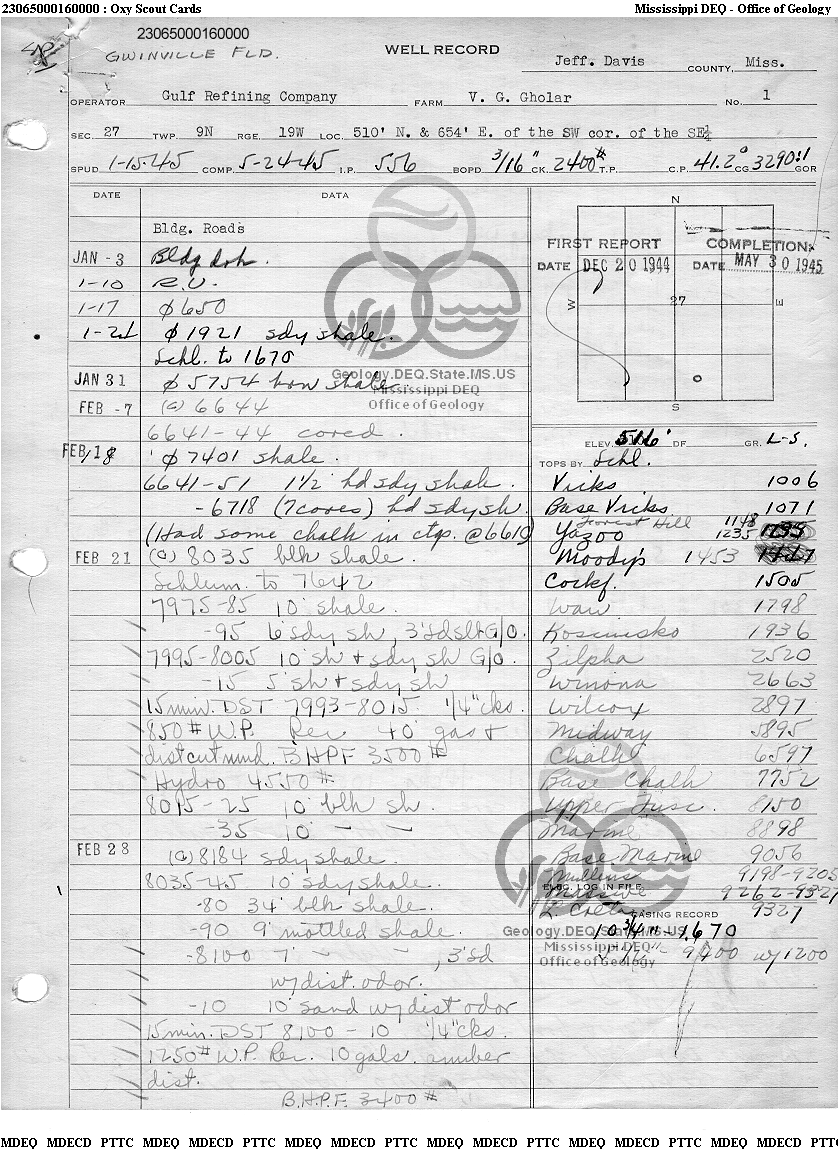 23065000160000 : Oxy Scout Cards
Mississippi DEQ - Office of Geology
23065000160000
GWINVILLE FLD.
WELL RECORD
Jeff. Davis COUNTY, Miss.
OPERATOR Gulf Refining Company FARM V. G. Gholar No. 1
SEC. 27 TWP. 9N RGE. 19W LOC. 510' N. & 654' E. of the SW cor. of the SE¼
SPUD 1-15-45 COMP. 5-24-45 I.P. 556 BOPD 3/16" CK. 2400# T.P. C.P. 41.2° CG 3290:1 GOR
DATE DATA
Bldg. Roads
JAN - 3 Bldg drk.
1-10 R.U.
1-17 ∅ 650
1-24 ∅ 1921 sdy shale.
Schl. to 1670
JAN 31 ∅ 5754 brn shale
FEB - 7 (c) 6644
6641-44 cored.
FEB 18 ∅ 7401 shale.
6641-51 1½' hd sdy shale.
-6718 (7 cores) hd sdy sh.
(Had some chalk in ctgs. @ 6610)
FEB 21 (c) 8035 blk shale.
Schlum. to 7642
7975-85 10' shale.
-95 6' sdy sh, 3' sd slt G/O.
7995-8005 10' sh & sdy sh G/O.
-15 5' sh & sdy sh
15 min. DST 7993-8015 1/4" cks.
850# W.P. Rec 40' gas &
dist cut mud. B.H.P.F 3500#
Hydro 4550#.
8015-25 10' blk sh.
-35 10' — —
FEB 28 (c) 8184 sdy shale.
8035-45 10' sdy shale.
-80 34' blk shale.
-90 9' mottled shale.
-8100 7' — —, 3' sd
w/ dist. odor.
-10 10' sand w/ dist odor
15 min. DST 8100-10 1/4" cks.
1250# W.P. Rec. 10 gals. amber
dist.
B.H.P.F. 3400#
N
FIRST REPORT COMPLETION
DATE DEC 20 1944 DATE MAY 30 1945
W 27 E
S
ELEV. 516' DF GR. L-S.
TOPS BY Schl.
Vicks 1006
Base Vicks 1071
Forest Hill 1148
Yazoo 1235
Moody's 1453
Cockf. 1505
Waut 1798
Kosciusko 1936
Zilpha 2520
Winona 2663
Wilcox 2897
Midway 5895
Chalk 6597
Base Chalk 7752
Upper Tusc. 8150
Marine 8898
Base Marine 9056
Mullins 9198-9205
Massive 9262-9327
ELEC. LOG IN FILE
L. Creta 9327
CASING RECORD
10 3/4" - 1670
9400 w/ 1200
Geology.DEQ.State.MS.US
Mississippi DEQ
Office of Geology
Geology.DEQ.State.MS.US
Mississippi DEQ
Office of Geology
MDEQ MDECD PTTC MDEQ MDECD PTTC MDEQ MDECD PTTC MDEQ MDECD PTTC MDEQ MDECD PTTC MDEQ MDECD PTTC